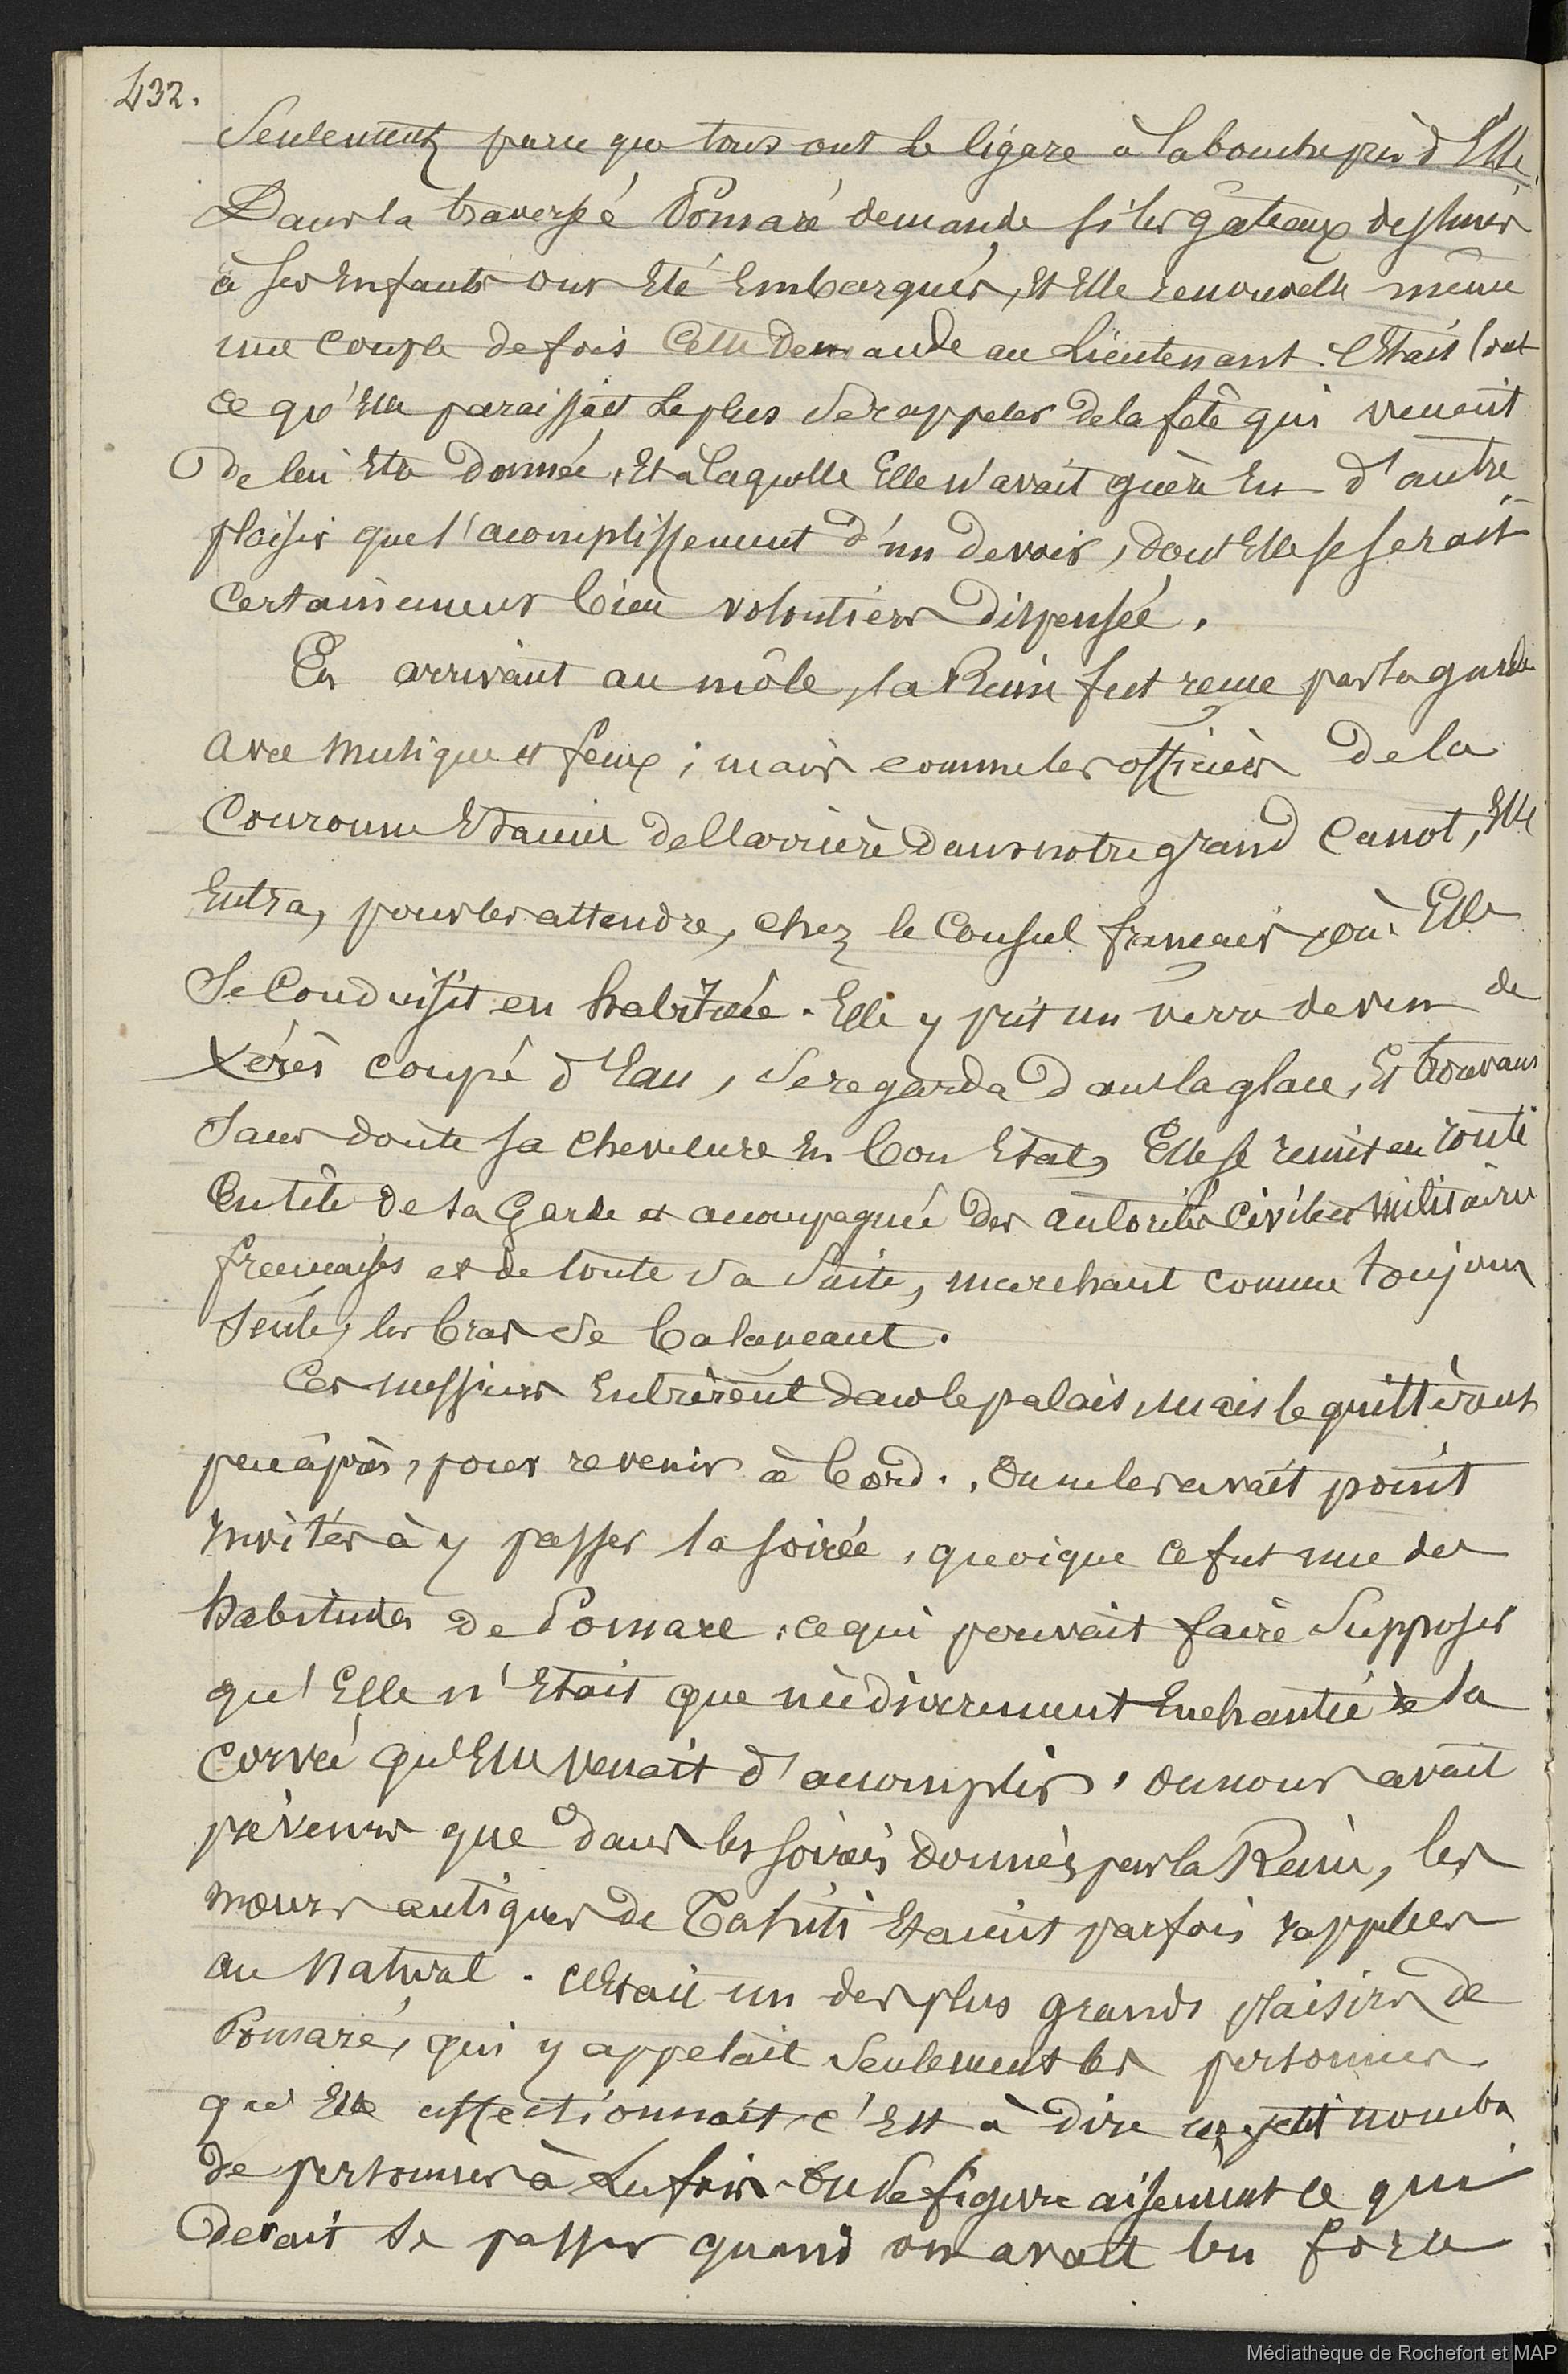 432.
Seulement parce que tous ont le Cigare à la bouche près d'Elle.
Dans la traversée Pomaré demande si les gâteaux destinés
à ses Enfants ont Eté Embarqués, Et Elle renouvelle même
une couple de fois cette Demande au Lieutenant. C'Etait tout
ce qu'Elle paraissait le plus se rappeler de la fête qui venait
de lui Etre Donnée, Et à laquelle Elle n'avait guère Eu d'autre
plaisir que l'acomplissement d'un devoir, dont Elle se serait
certainement bien volontiers Dispensée.
En arrivant au môle, la Reine fut reçue par la garde
avec musique et feux ; mais comme les officiers De la
Couronne Etaient De l'arrière dans notre grand Canot, Elle
Entra, pour les attendre, chez le Consul français, où Elle
se Conduisit en habituée. Elle y prit un verre de vin de
Xérès coupé d'Eau, se regarda dans la glace, Et trouvant
sans doute sa chevelure En bon Etat, Elle se remit en route
En tête de sa Garde et accompagnée des autorités civiles et militaires
françaises et de toute sa suite, marchant comme toujours
seule, les bras se balançant.
Ces messieurs Entrèrent dans le palais, mais le quittèrent
peu après, pour revenir à bord. On ne les avait point
Invités à y passer la soirée, quoique ce fut une des
habitudes de Pomaré, ce qui pouvait faire supposer
qu'Elle n'Etait que médiocrement Enchantée de la
corvée qu'Elle venait d'accomplir. On nous avait
prévenus que dans les soirées données par la Reine, les
mœurs antiques de Tahiti Etaient parfois rappelées
au Naturel. C'Etait un des plus grands plaisirs de
Pomaré, qui y appelait seulement les personnes
qu'Elle affectionnait, c'Est à dire un petit nombre
de personnes à la fois. On se figure aisément ce qui
devait se passer quand on avait bu force
Médiathèque de Rochefort et MAP